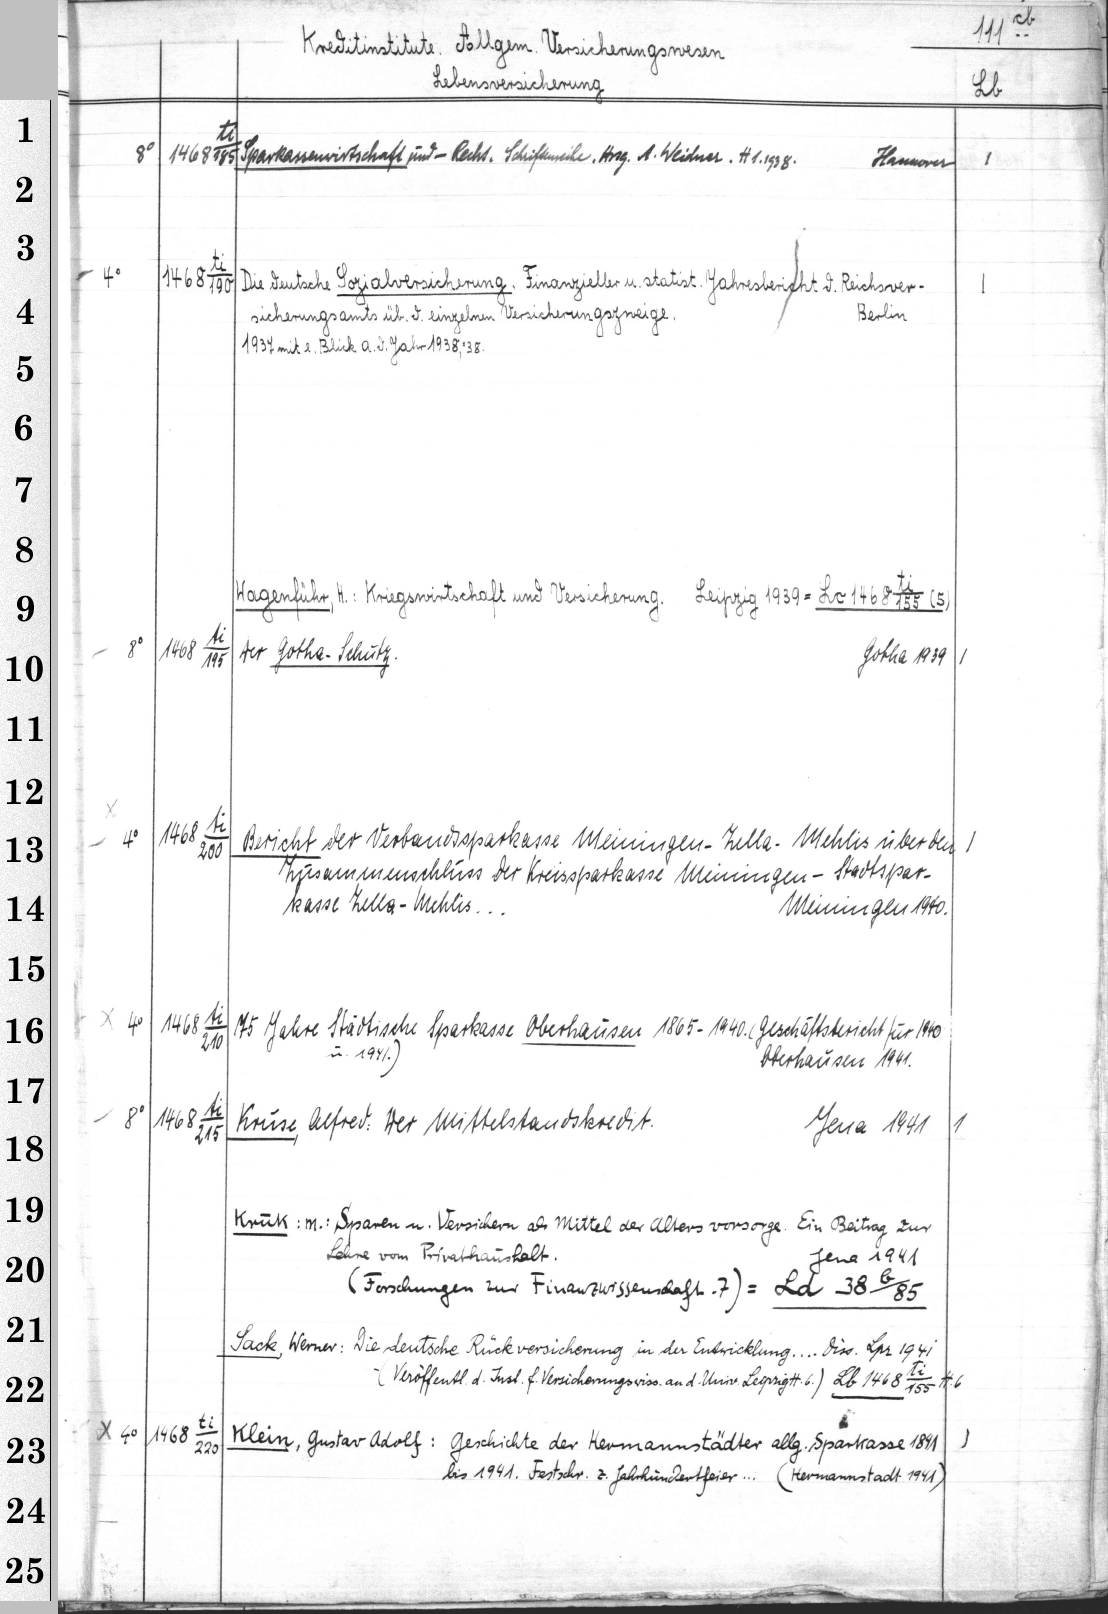 111 cb
Kreditinstitute. Allgem. Versicherungswesen
Lebensversicherung
Lb
1
8° 1468 ti/185 Sparkassenwirtschaft und - Recht. Schriftenreihe. Hrsg. A. Weidner. H 1. 1938. Hannover 1
2
3
4° 1468 ti/190 Die deutsche Sozialversicherung. Finanzieller u. statist. Jahresbericht d. Reichsver- 1
4 sicherungsamts üb. d. einzelnen Versicherungszweige. Berlin
1937 mit e. Blick a. d. Jahr 1938, '38.
5
6
7
8
9 Wagenführ, H.: Kriegswirtschaft und Versicherung. Leipzig 1939 = Lb 1468 ti/155 (5)
8° 1468 ti/195 Der Gotha-Schutz. Gotha 1939 1
10
11
12
x
13 4° 1468 ti/200 Bericht der Verbandssparkasse Meiningen - Zella - Mehlis über den 1
Zusammenschluss der Kreissparkasse Meiningen - Stadtspar-
14 kasse Zella - Mehlis... Meiningen 1940.
15
16 x 4° 1468 ti/210 75 Jahre Städtische Sparkasse Oberhausen 1865 - 1940. (Geschäftsbericht für 1940
u. 1941.) Oberhausen 1941.
17
8° 1468 ti/215 Kruse, Alfred: Der Mittelstandskredit. Jena 1941 1
18
19 Kruk: m.: Sparen u. Versichern als Mittel der Altersvorsorge. Ein Beitrag zur
Lehre vom Privathaushalt. Jena 1941
20 (Forschungen zur Finanzwissenschaft. 7) = Ld 38 b/85
21 Sack, Werner: Die deutsche Rückversicherung in der Entwicklung.... Diss. Lpz 1941
22 (Veröffentl. d. Inst. f. Versicherungswiss. an d. Univ. Leipzig H. 6.) Lb 1468 ti/155 H. 6
23 x 4° 1468 ti/220 Klein, Gustav Adolf: Geschichte der Hermannstädter allg. Sparkasse 1841 1
bis 1941. Festschr. z. Jahrhundertfeier... (Hermannstadt 1941)
24
25